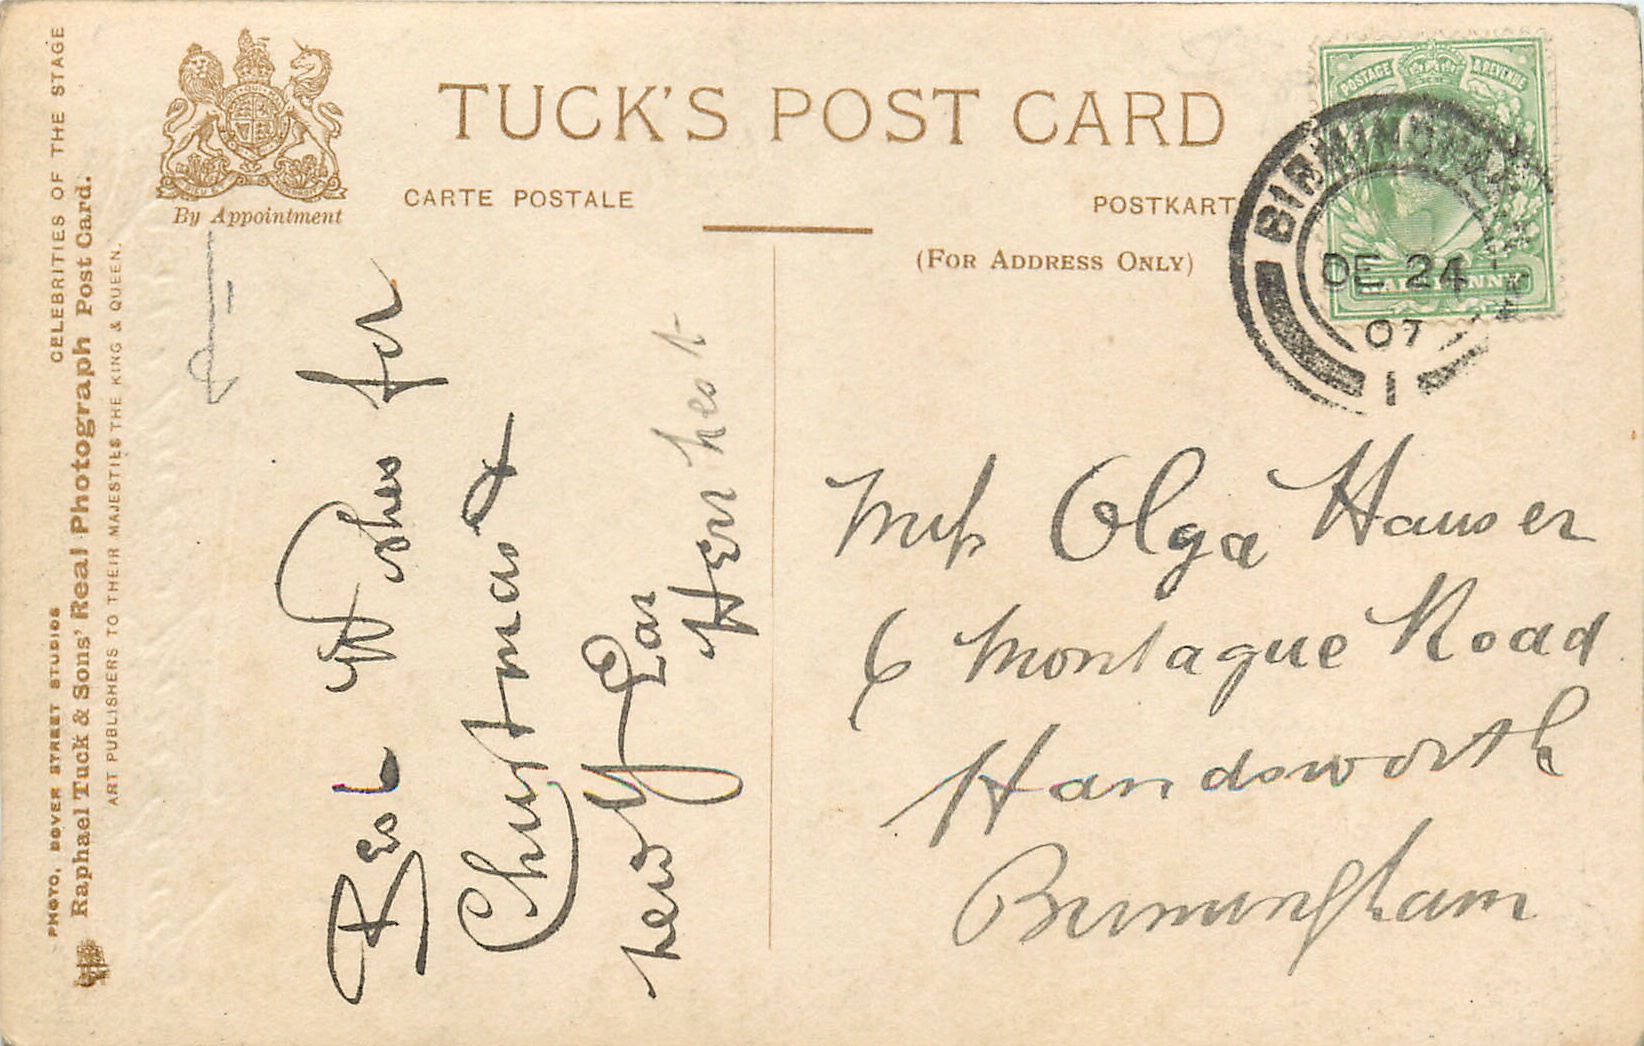 TUCK'S POST CARD
CARTE POSTALE
POSTKART
(FOR ADDRESS ONLY)
By Appointment
CELEBRITIES OF THE STAGE
PHOTO, DOVER STREET STUDIOS
Raphael Tuck & Sons' Real Photograph Post Card.
ART PUBLISHERS TO THEIR MAJESTIES THE KING & QUEEN.
POSTAGE & REVENUE
HALFPENNY
BIRMINGHAM
DE 24
07
1
Best Wishes for
Christmas &
new Year
Miss Olga Hauser
6 Montague Road
Handsworth
Birmingham